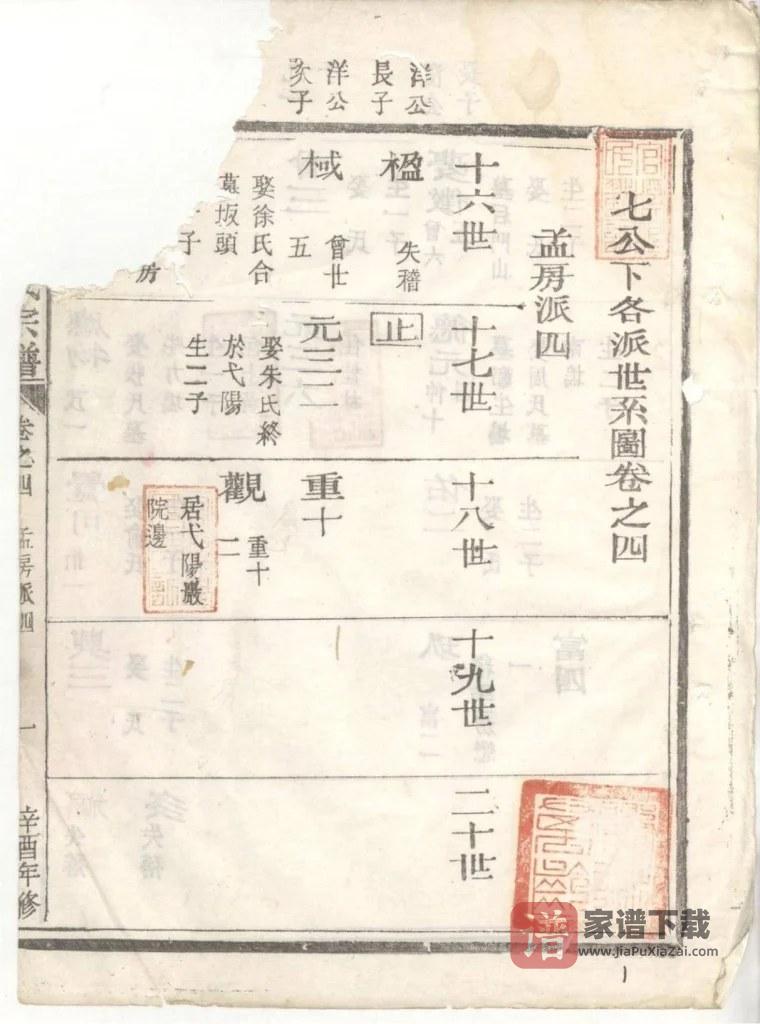 七公下各派世系圖卷之四
孟房派四
十六世
十七世
十八世
十九世
二十世
洋公
長子
楹
失稽
止
洋公
次子
棫
曾廿
五
娶徐氏合
墓坂頭
子
房
元三二
娶朱氏終
於弋陽
生二子
重十
觀
重十
二
居弋陽巖
院邊
宗譜
卷之四
孟房派四
一
辛酉年修
家谱下载
www.JiaPuXiaZai.com
谱